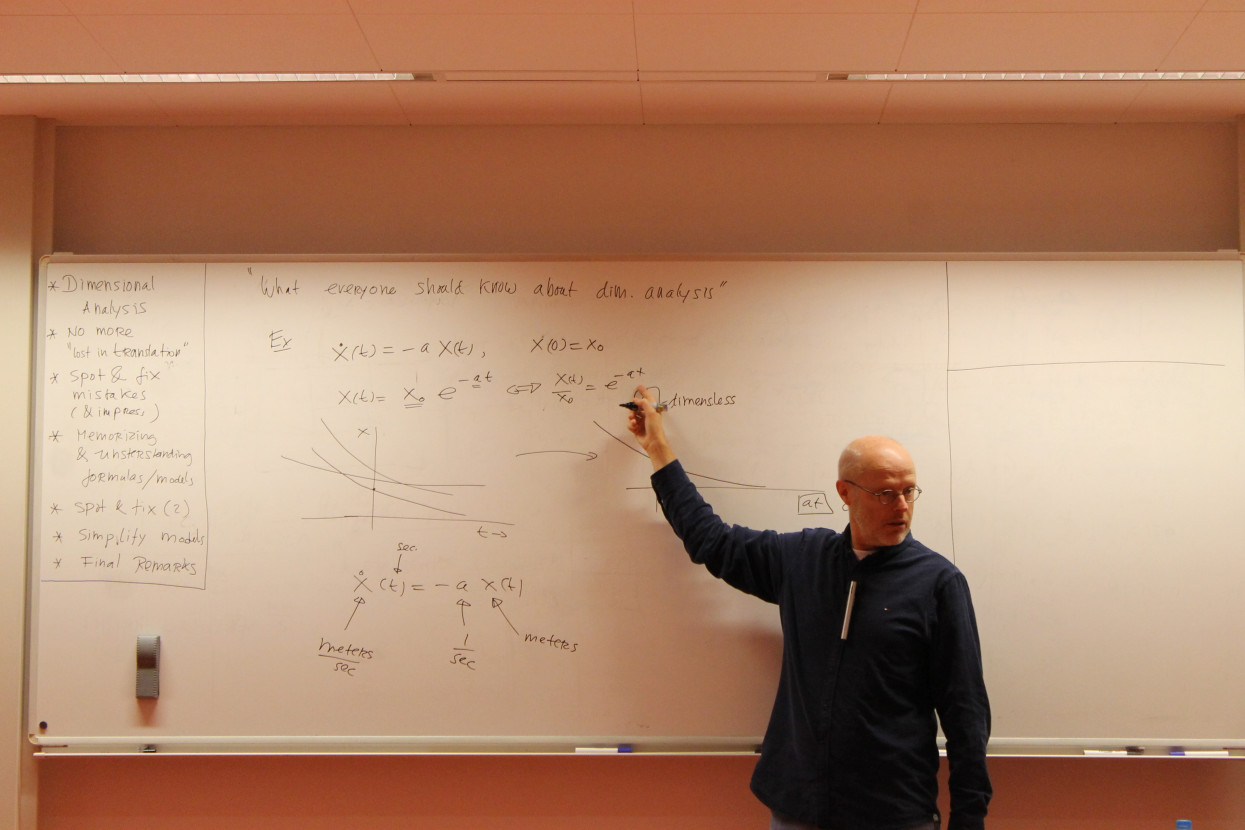 * Dimensional
Analysis
* No more
"lost in translation"
* Spot & fix
mistakes
(& impress)
* Memorizing
& unsterstanding
formulas/models
* Spot & fix (2)
* Simplify models
* Final Remarks
"What everyone should know about dim. analysis"
Ex
Ẋ(t) = -a X(t), X(0) = x₀
X(t) = X₀ e^{-at} ⟺ X(t)/x₀ = e^{-at}
dimensless
x
t →
at
sec
Ẋ(t) = -a X(t)
meters/sec
1/sec
meters